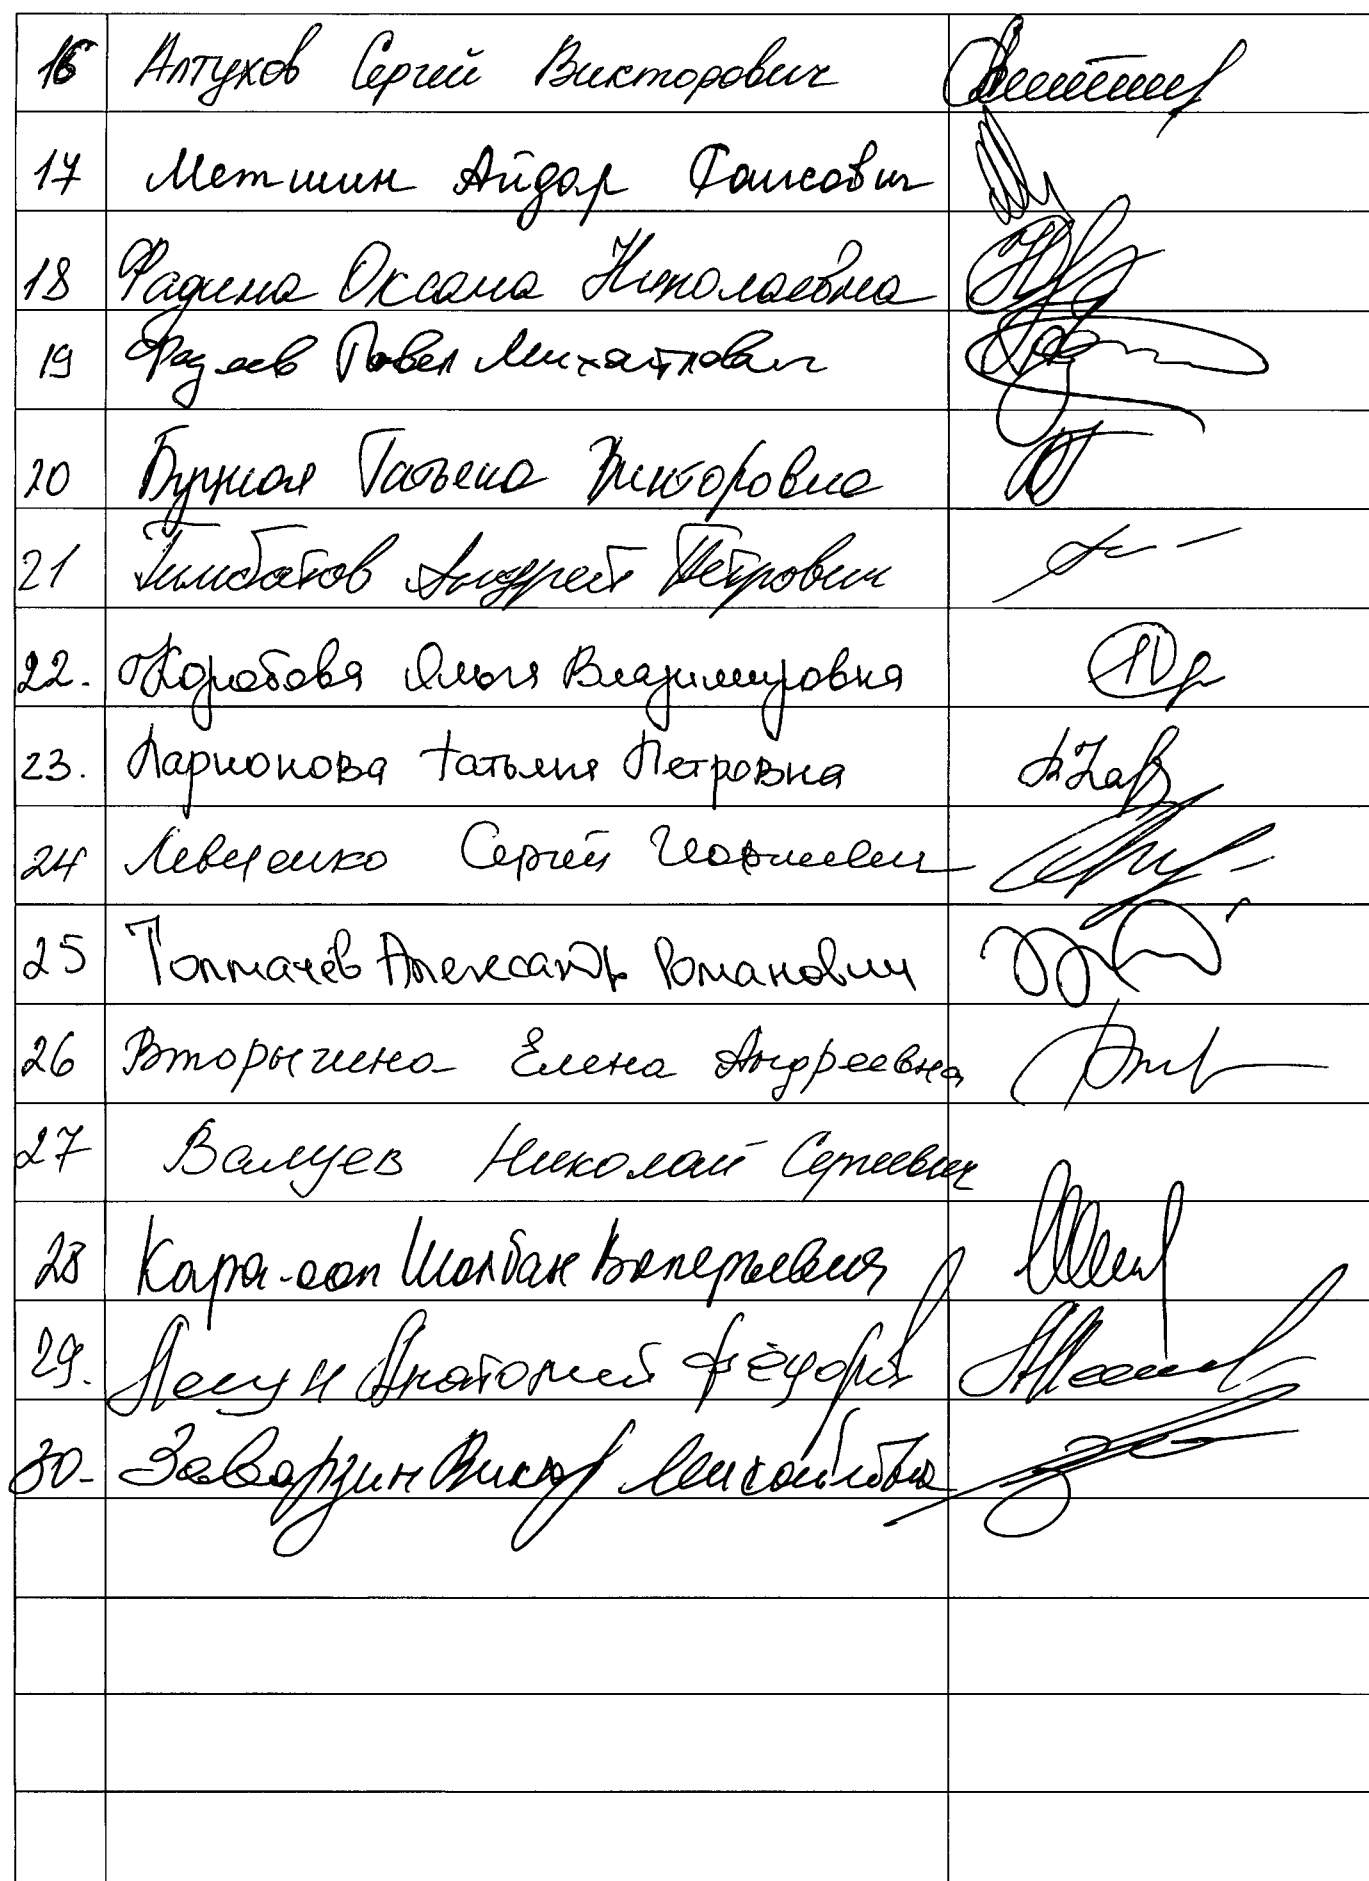 16 Алтухов Сергей Викторович
17 Метшин Айдар Раисович
18 Фадина Оксана Николаевна
19 Фадеев Павел Михайлович
20 Буцкая Татьяна Викторовна
21 Тимбатов Андрей Петрович
22. Коробова Ольга Владимировна
23. Ларионова Татьяна Петровна
24 Левченко Сергей
25 Толмачёв Александр Романович
26 Вторыгина Елена Андреевна
27 Валуев Николай Сергеевич
28 Кара-оол Шолбан Валерьевич
29. Лесун Анатолий Фёдоров
30. Заварзин Виктор Михайлович